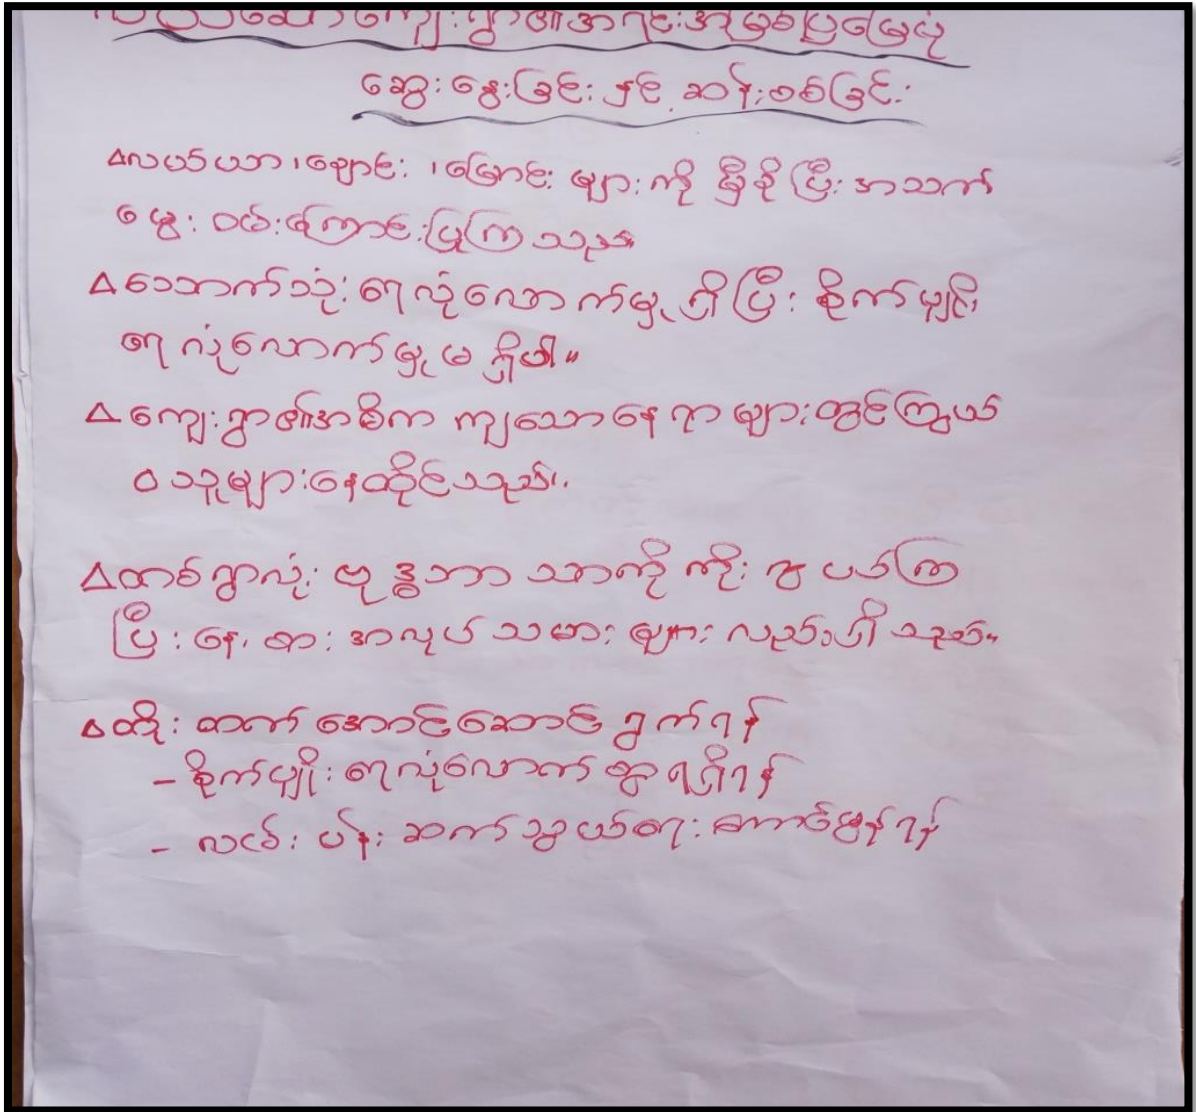 ကျေးရွာ၏အရင်းအမြစ်ပြမြေပုံ
ဆွေးနွေးခြင်းနှင့် ဆန်းစစ်ခြင်း
လယ်ယာ၊ချောင်း၊မြောင်းများကို မှီခိုပြီးအသက်
မွေးဝမ်းကြောင်းပြုကြသည်။
သောက်သုံးရေလုံလောက်မှုရှိပြီးစိုက်ပျိုး
ရေလုံလောက်မှုမရှိပါ။
ကျေးရွာ၏အဓိကကျသောနေရာများတွင်ကြွယ်
ဝသူများနေထိုင်သည်။
တစ်ရွာလုံးဗုဒ္ဓဘာသာကိုကိုးကွယ်ကြ
ပြီးနေ့စားအလုပ်သမားများလည်းရှိသည်။
တိုးတက်အောင်ဆောင်ရွက်ရန်
- စိုက်ပျိုးရေလုံလောက်စွာရရှိရန်
- လမ်းပန်းဆက်သွယ်ရေးကောင်မွန်ရန်